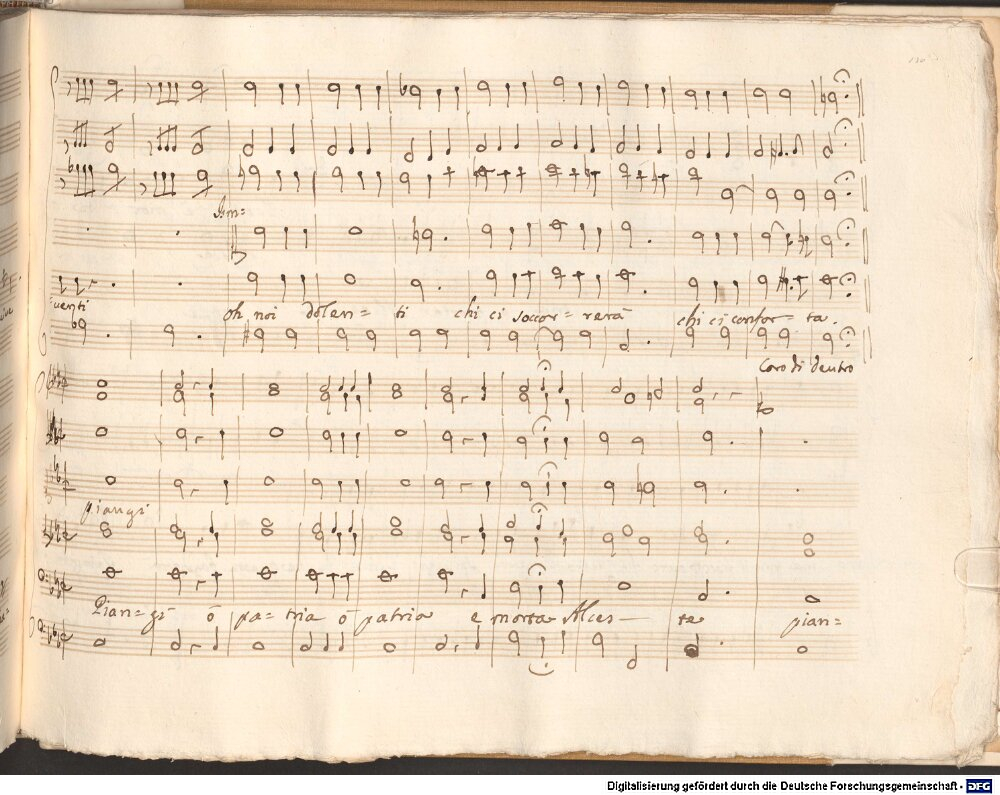 Am=
venti
oh noi dolen= ti chi ci soccor= rerà chi ci confor- ta.
Coro di dentro
piangi
Pian= gi ò pa= tria ò patria e morta Alces- te pian=
Digitalisierung gefördert durch die Deutsche Forschungsgemeinschaft - DFG